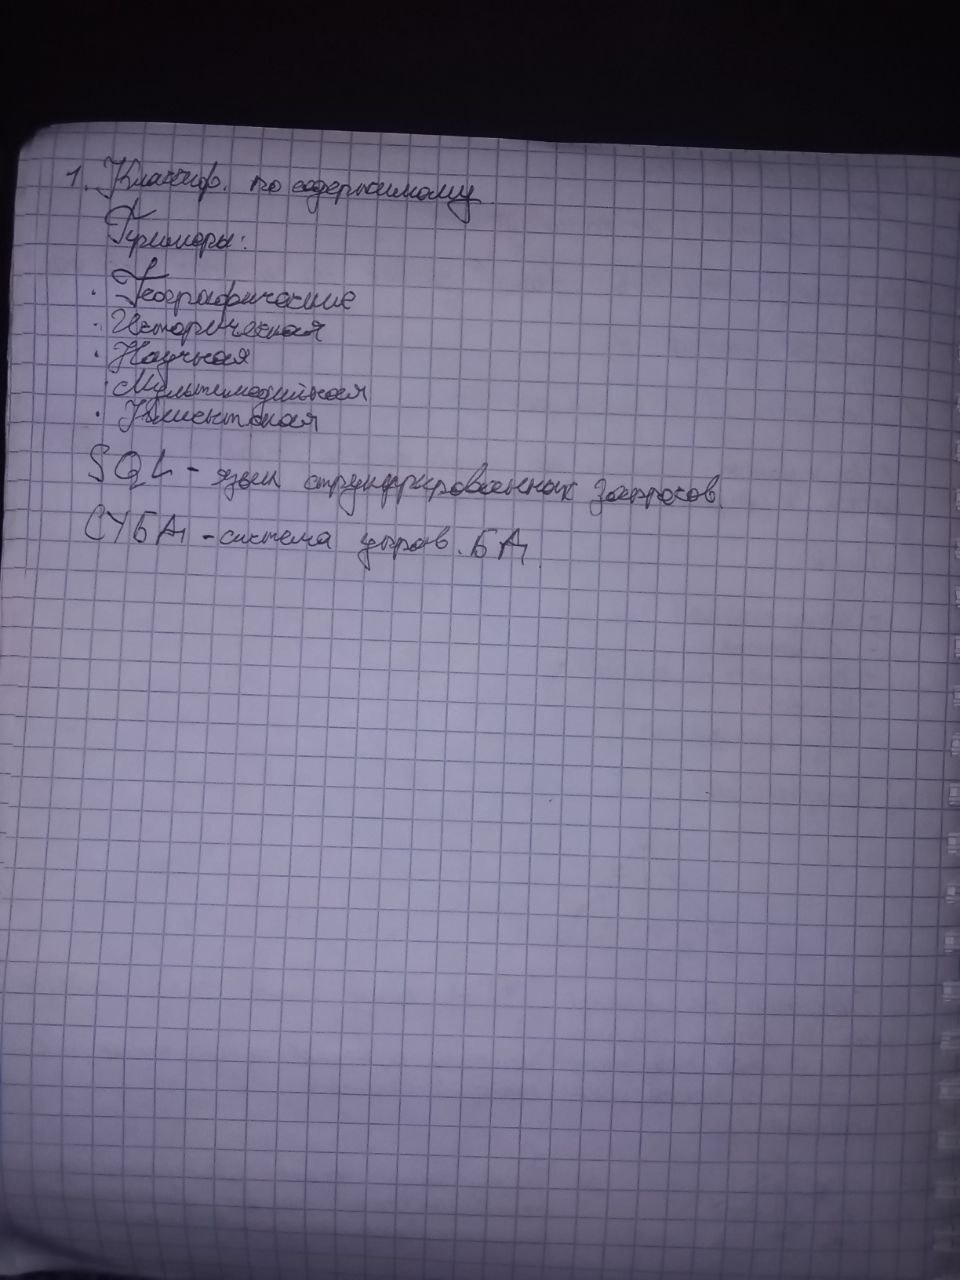 1. Классиф. по содержимому
Примеры:
· Географические
· Историческая
· Научная
· Мультимедийная
· Клиентская
SQL - язык структурированных запросов
СУБД - система управ. БД